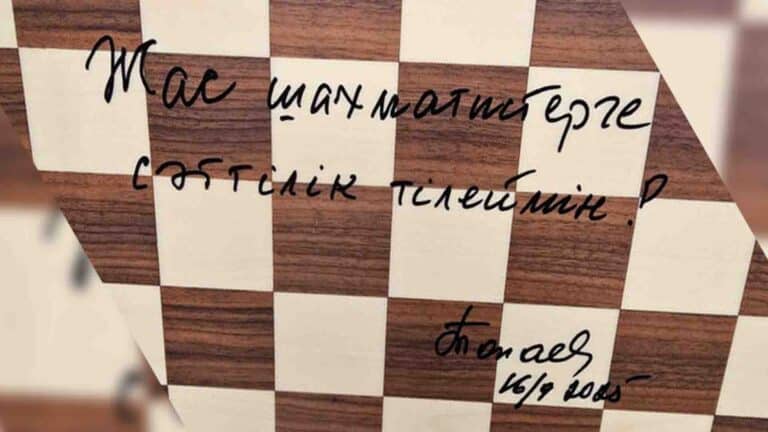 Жас шахматистерге
сәттілік тілеймін!
Тоқаев
16/9 2025